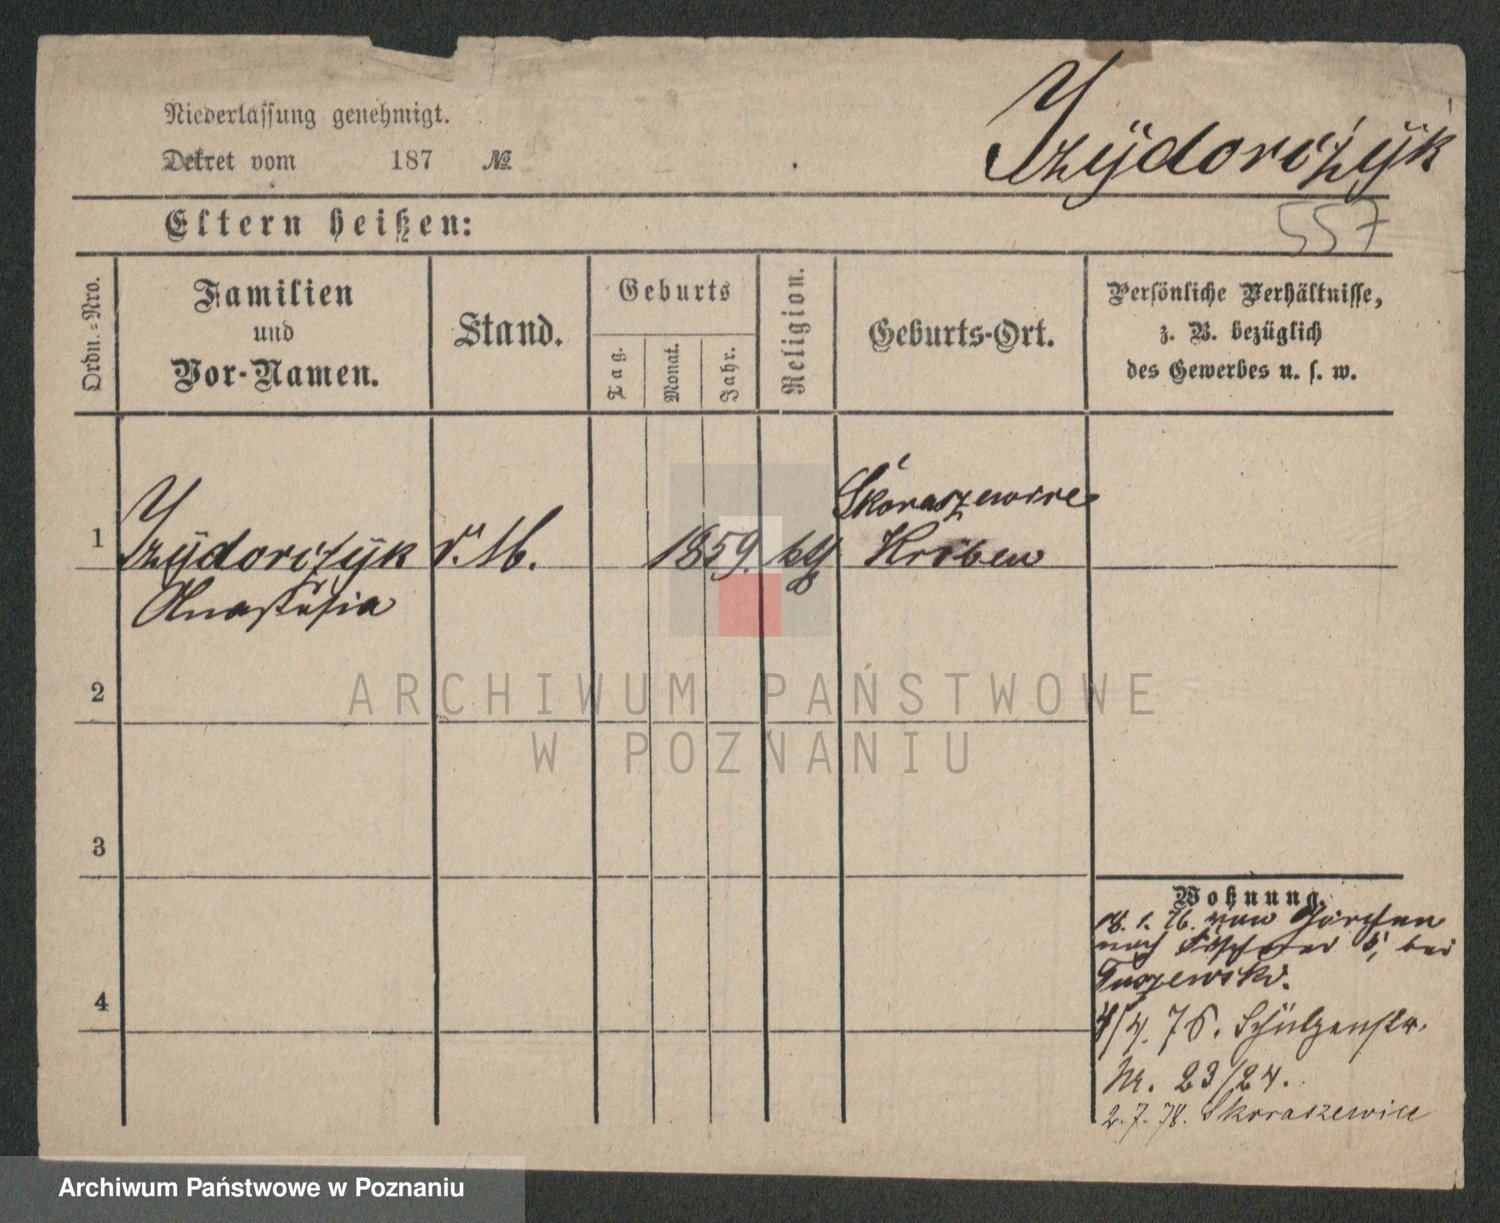 Niederlassung genehmigt.
Dekret vom 187 №
Izÿdorčzÿk
557
Eltern heißen:
Ordn.-Nro.
Familien
und
Vor-Namen.
Stand.
Geburts
Tag.
Monat.
Jahr.
Religion.
Geburts-Ort.
Persönliche Verhältnisse,
z. B. bezüglich
des Gewerbes u. s. w.
1
Izÿdorčzÿk
Anastasia
d. M.
1859.
kath
Skoraszewice
Kröben
2
3
4
Wohnung.
18. 1. 76. von
nach 5, bei
Tuszewski.
4/4. 76. Schützenstr.
Nr. 23/24.
2. 7. 78. Skoraszewice
ARCHIWUM PAŃSTWOWE
W POZNANIU
Archiwum Państwowe w Poznaniu